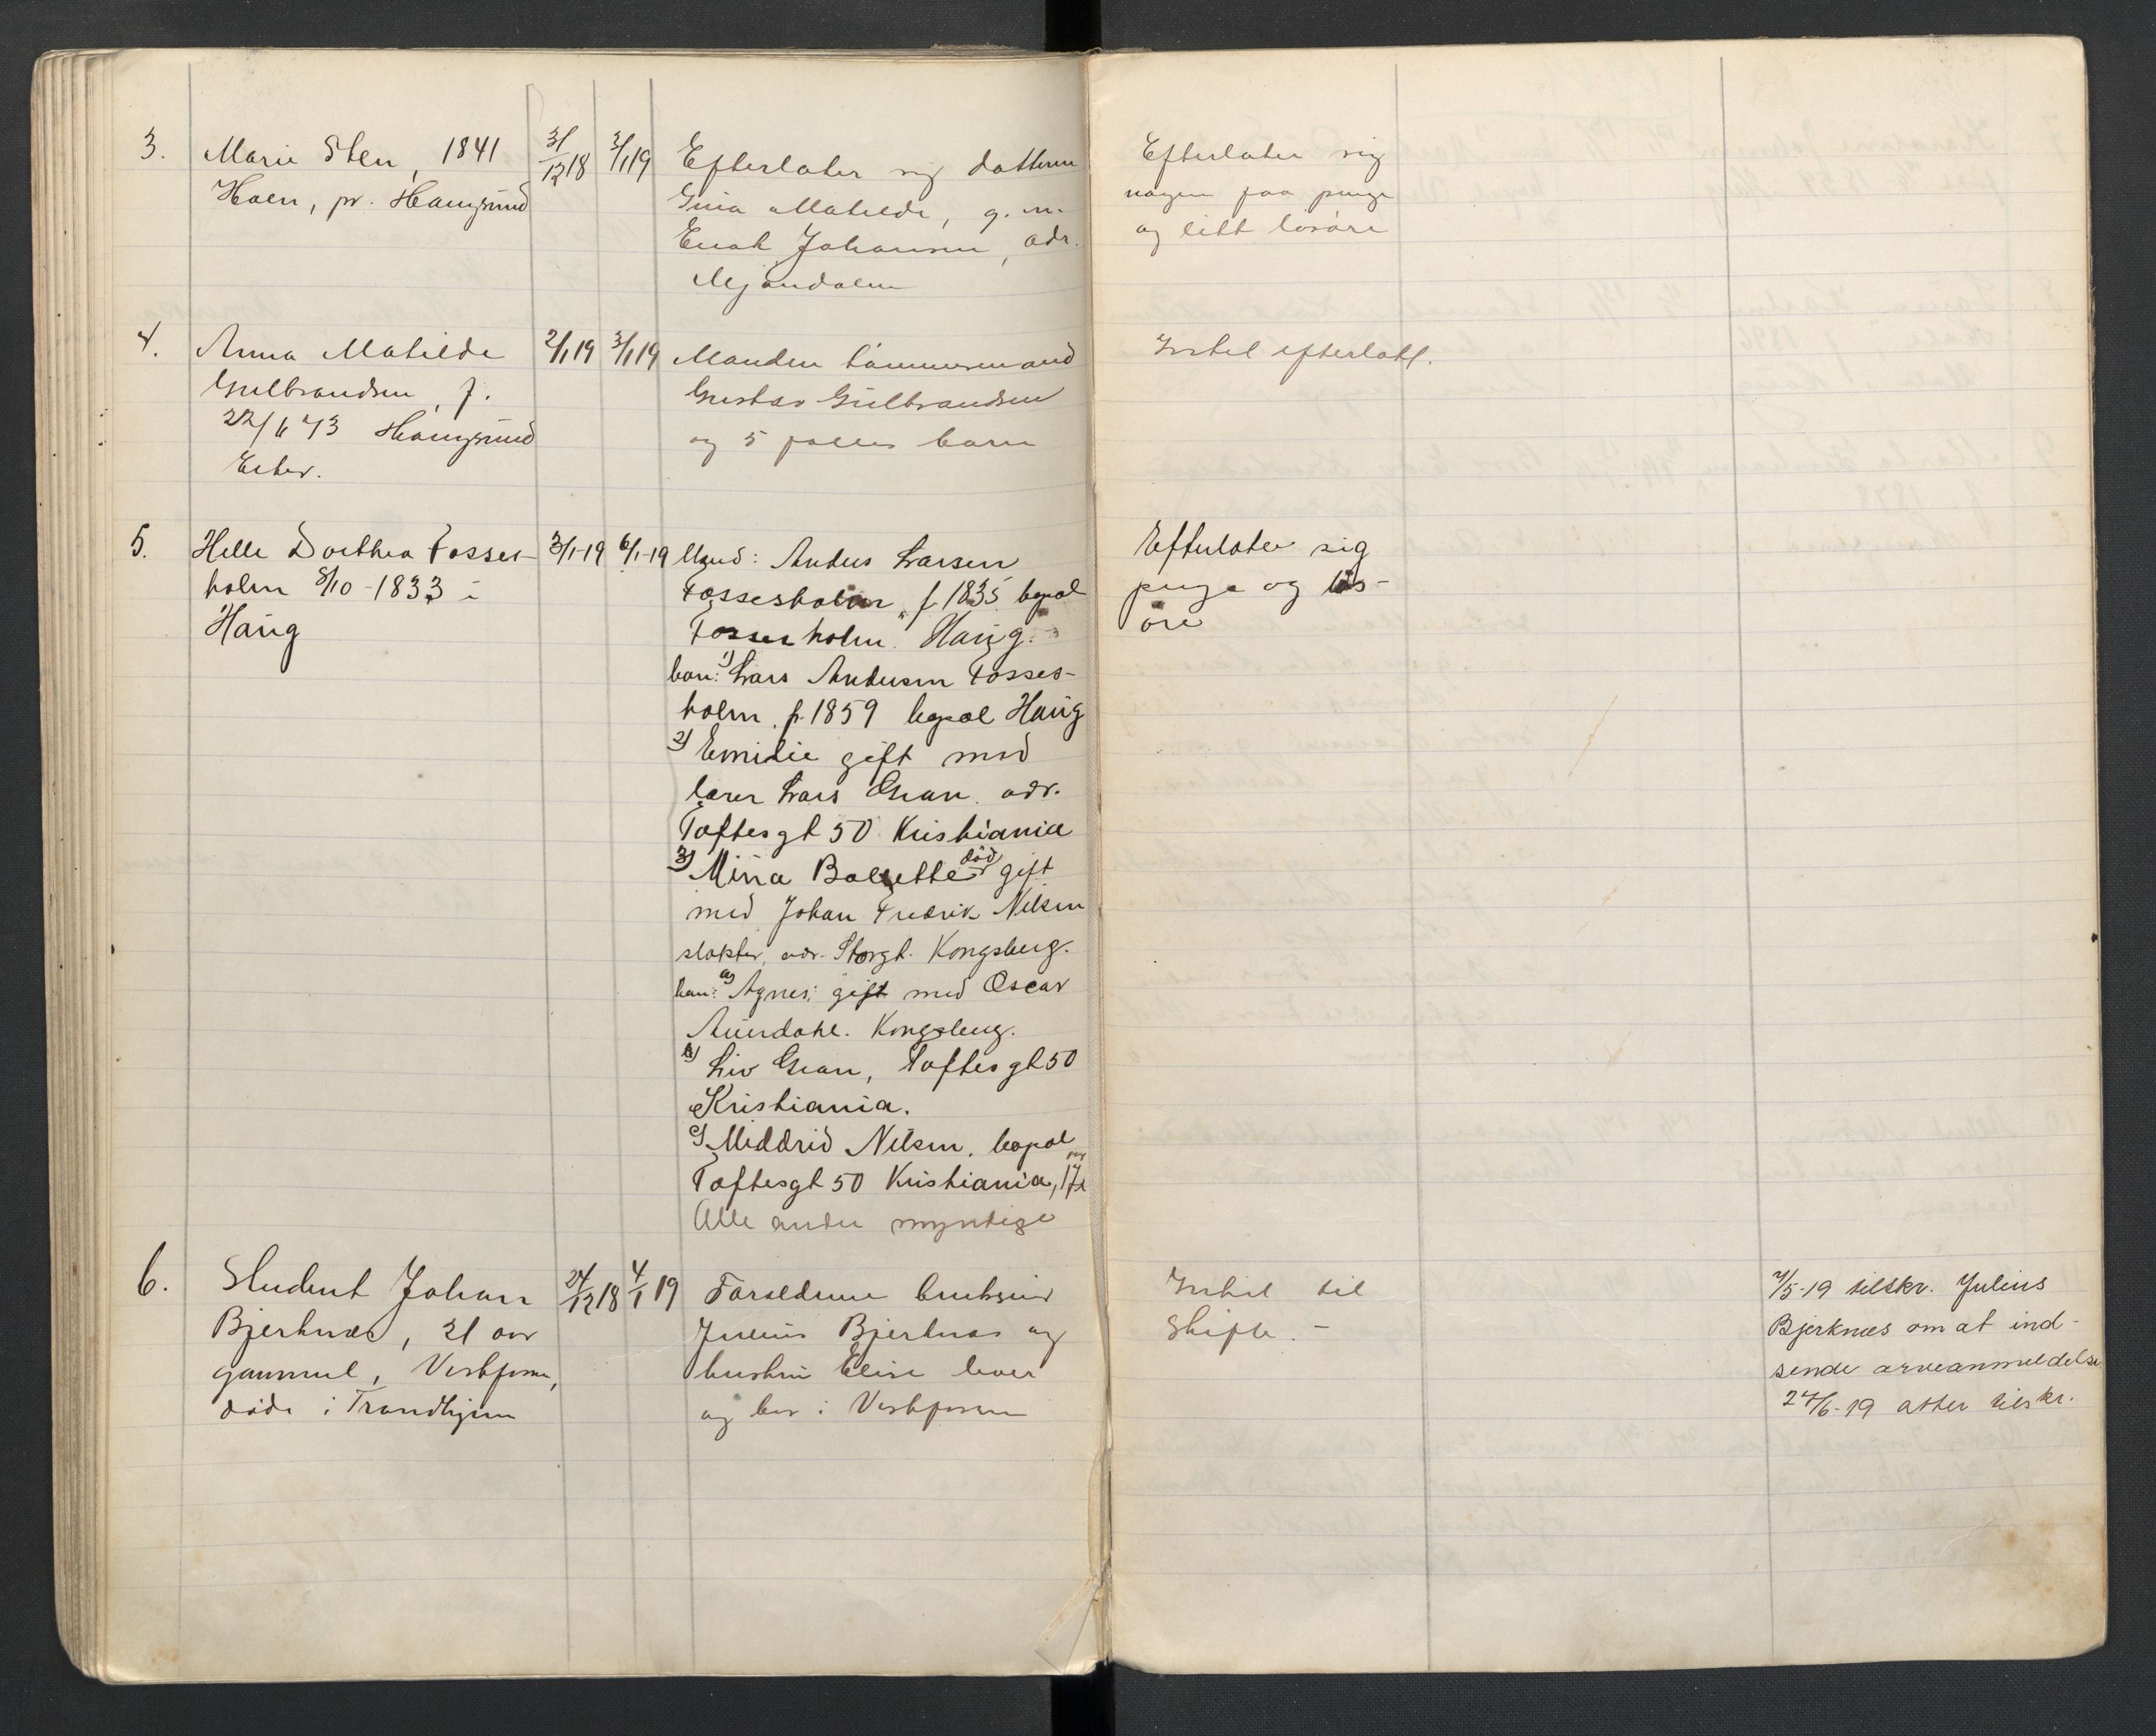 3.
Marie Sten, 1841
Hoen, pr. Hougsund
31/12 18
3/1 19
Efterlater sig datteren
Gina Matilde, g. m.
Enok Johansen, adr.
Mjøndalen
Efterlater sig
nogen faa penge
og litt løsøre
4.
Anna Matilde
Gulbrandsen, f.
22/6 73 Hougsund
Eiker.
2/1 19
3/1 19
Manden tømmermand
Gustav Gulbrandsen
og 5 fælles barn
Intet efterlatt.
5.
Helle Dorthea Fosses-
holm 8/10-1833 i
Haug
3/1-19
6/1-19
Mand: Anders Larsen
Fossesholm, f. 1835 bopæl
Fossesholm Haug.
barn: 1) Lars Andersen Fosses-
holm, f. 1859 bopæl Haug
2) Emilie gift med
lærer Lars Gran. adr.
Toftesgt 50 Kristiania
3) Mina Bolette død gift
med Johan Fredrik Nilsen
slakter, adr. Storgt. Kongsberg.
barn: a) Agnes; gift med Oscar
Kongsberg.
b) Liv Gran, Toftesgt 50
Kristiania.
c) Mildrid Nilsen, bopæl
Toftesgt 50 Kristiania, 17 aar
Alle andre myndige
Efterlater sig
penge og løs-
øre
6.
Student Johan
Bjerknæs, 21 aar
gammel, Vestfossen,
døde i Trondhjem
24/12 18
4/1 19
Forældrene brukseier
Julius Bjerknæs og
hustru Elise lever
og bor i Vestfossen
Intet til
Skifte. -
7/5-19 tilskr. Julius
Bjerknæs om at ind-
sende arveanmeldelse
24/6-19 atter tilskr.